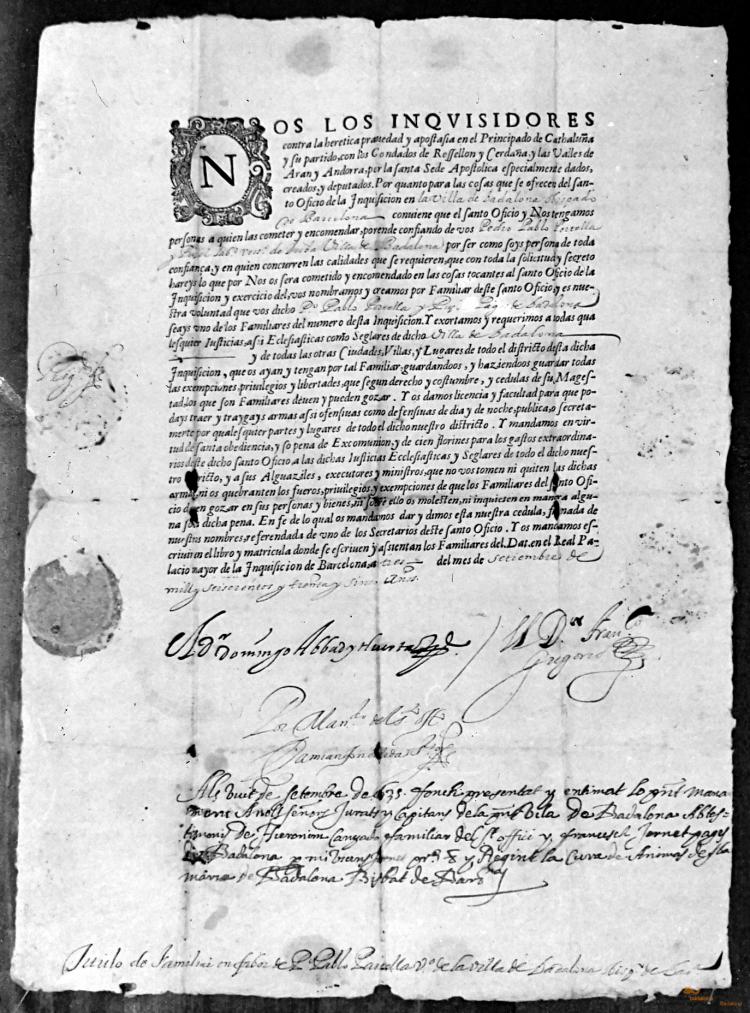 NOS LOS INQVISIDORES
contra la heretica prauedad y apostasia en el Principado de Cathaluña
y su partido, con los Condados de Rossellon y Cerdaña, y las Valles de
Aran y Andorra, por la santa Sede Apostolica especialmente dados,
creados, y deputados. Por quanto para las cosas que se ofrecen del san-
to Oficio de la Inquisicion en la Villa de Badalona Bispado
de Barcelona conuiene que el santo Oficio y Nos tengamos
personas a quien las cometer y encomendar, porende confiando de vos Pedro Pablo
Villa de Badalona por ser como soys persona de toda
confiança, y en quien concurren las calidades que se requieren, que con toda la solicitud y secreto
hareys lo que por Nos os sera cometido y encomendado en las cosas tocantes al santo Oficio de la
Inquisicion y exercicio del, vos nombramos y creamos por Familiar deste santo Oficio, y es nues-
tra voluntad que vos dicho Po Pablo de Badalona
seays vno de los Familiares del numero desta Inquisicion. Y exortamos y requerimos a todas qua
lesquier Iusticias, assi Ecclesiasticas como Seglares de dicho Villa de Badalona
y de todas las otras Ciudades, Villas, y Lugares de todo el districto desta dicha
Inquisicion, que os ayan y tengan por tal Familiar, guardandoos, y haziendoos guardar todas
las exempciones, priuilegios y libertades, que segun derecho y costumbre, y cedulas de su Mages-
tad, los que son Familiares deuen y pueden gozar. Y os damos licencia y facultad para que po-
days traer y traygays armas assi ofensiuas como defensiuas de dia y de noche, publica, o secreta-
mente por qualesquier partes y lugares de todo el dicho nuestro districto. Y mandamos en vir-
tud de santa obediencia, y so pena de Excomunion, y de cien florines para los gastos extraordina-
rios deste dicho santo Oficio a las dichas Iusticias Ecclesiasticas y Seglares de todo el dicho nues-
tro districto, y a sus Alguaziles, executores y ministros, que no vos tomen ni quiten las dichas
armas, ni os quebranten los fueros, priuilegios y exempciones de que los Familiares del santo Ofi-
cio deuen gozar en sus personas y bienes, ni sobre ello os molesten, ni inquieten en manera algu-
na so la dicha pena. En fe de lo qual os mandamos dar y dimos esta nuestra cedula, firmada de
nuestros nombres, referendada de vno de los Secretarios deste santo Oficio. Y os mandamos es-
criuir en el libro y matricula donde se escriuen y assientan los Familiares del. Dat. en el Real Pa-
lacio mayor de la Inquisicion de Barcelona, a tres del mes de setiembre de
mill y seiscientos y treinta y sinco Años.
Dr Domingo Abbad y Huerta
Ldo Dn Franco
Gregorio
Por Mando del So Offo
Damian
Als vuit de setembre de 635 fonch presentat y entimat lo pnt mana
ment Anels señors Jurats y Capitans de la pnt Vila de Badalona Ab tes-
timoni de Hieronim Canyado familiar del St offici y francesch Jornet pages
de Badalona p mi y Regint la Cura de Animas de Sta
maria de Badalona Bisbat de Barna
Titulo de Familiar en fabor de Po Pablo Vo de la Villa de Badalona